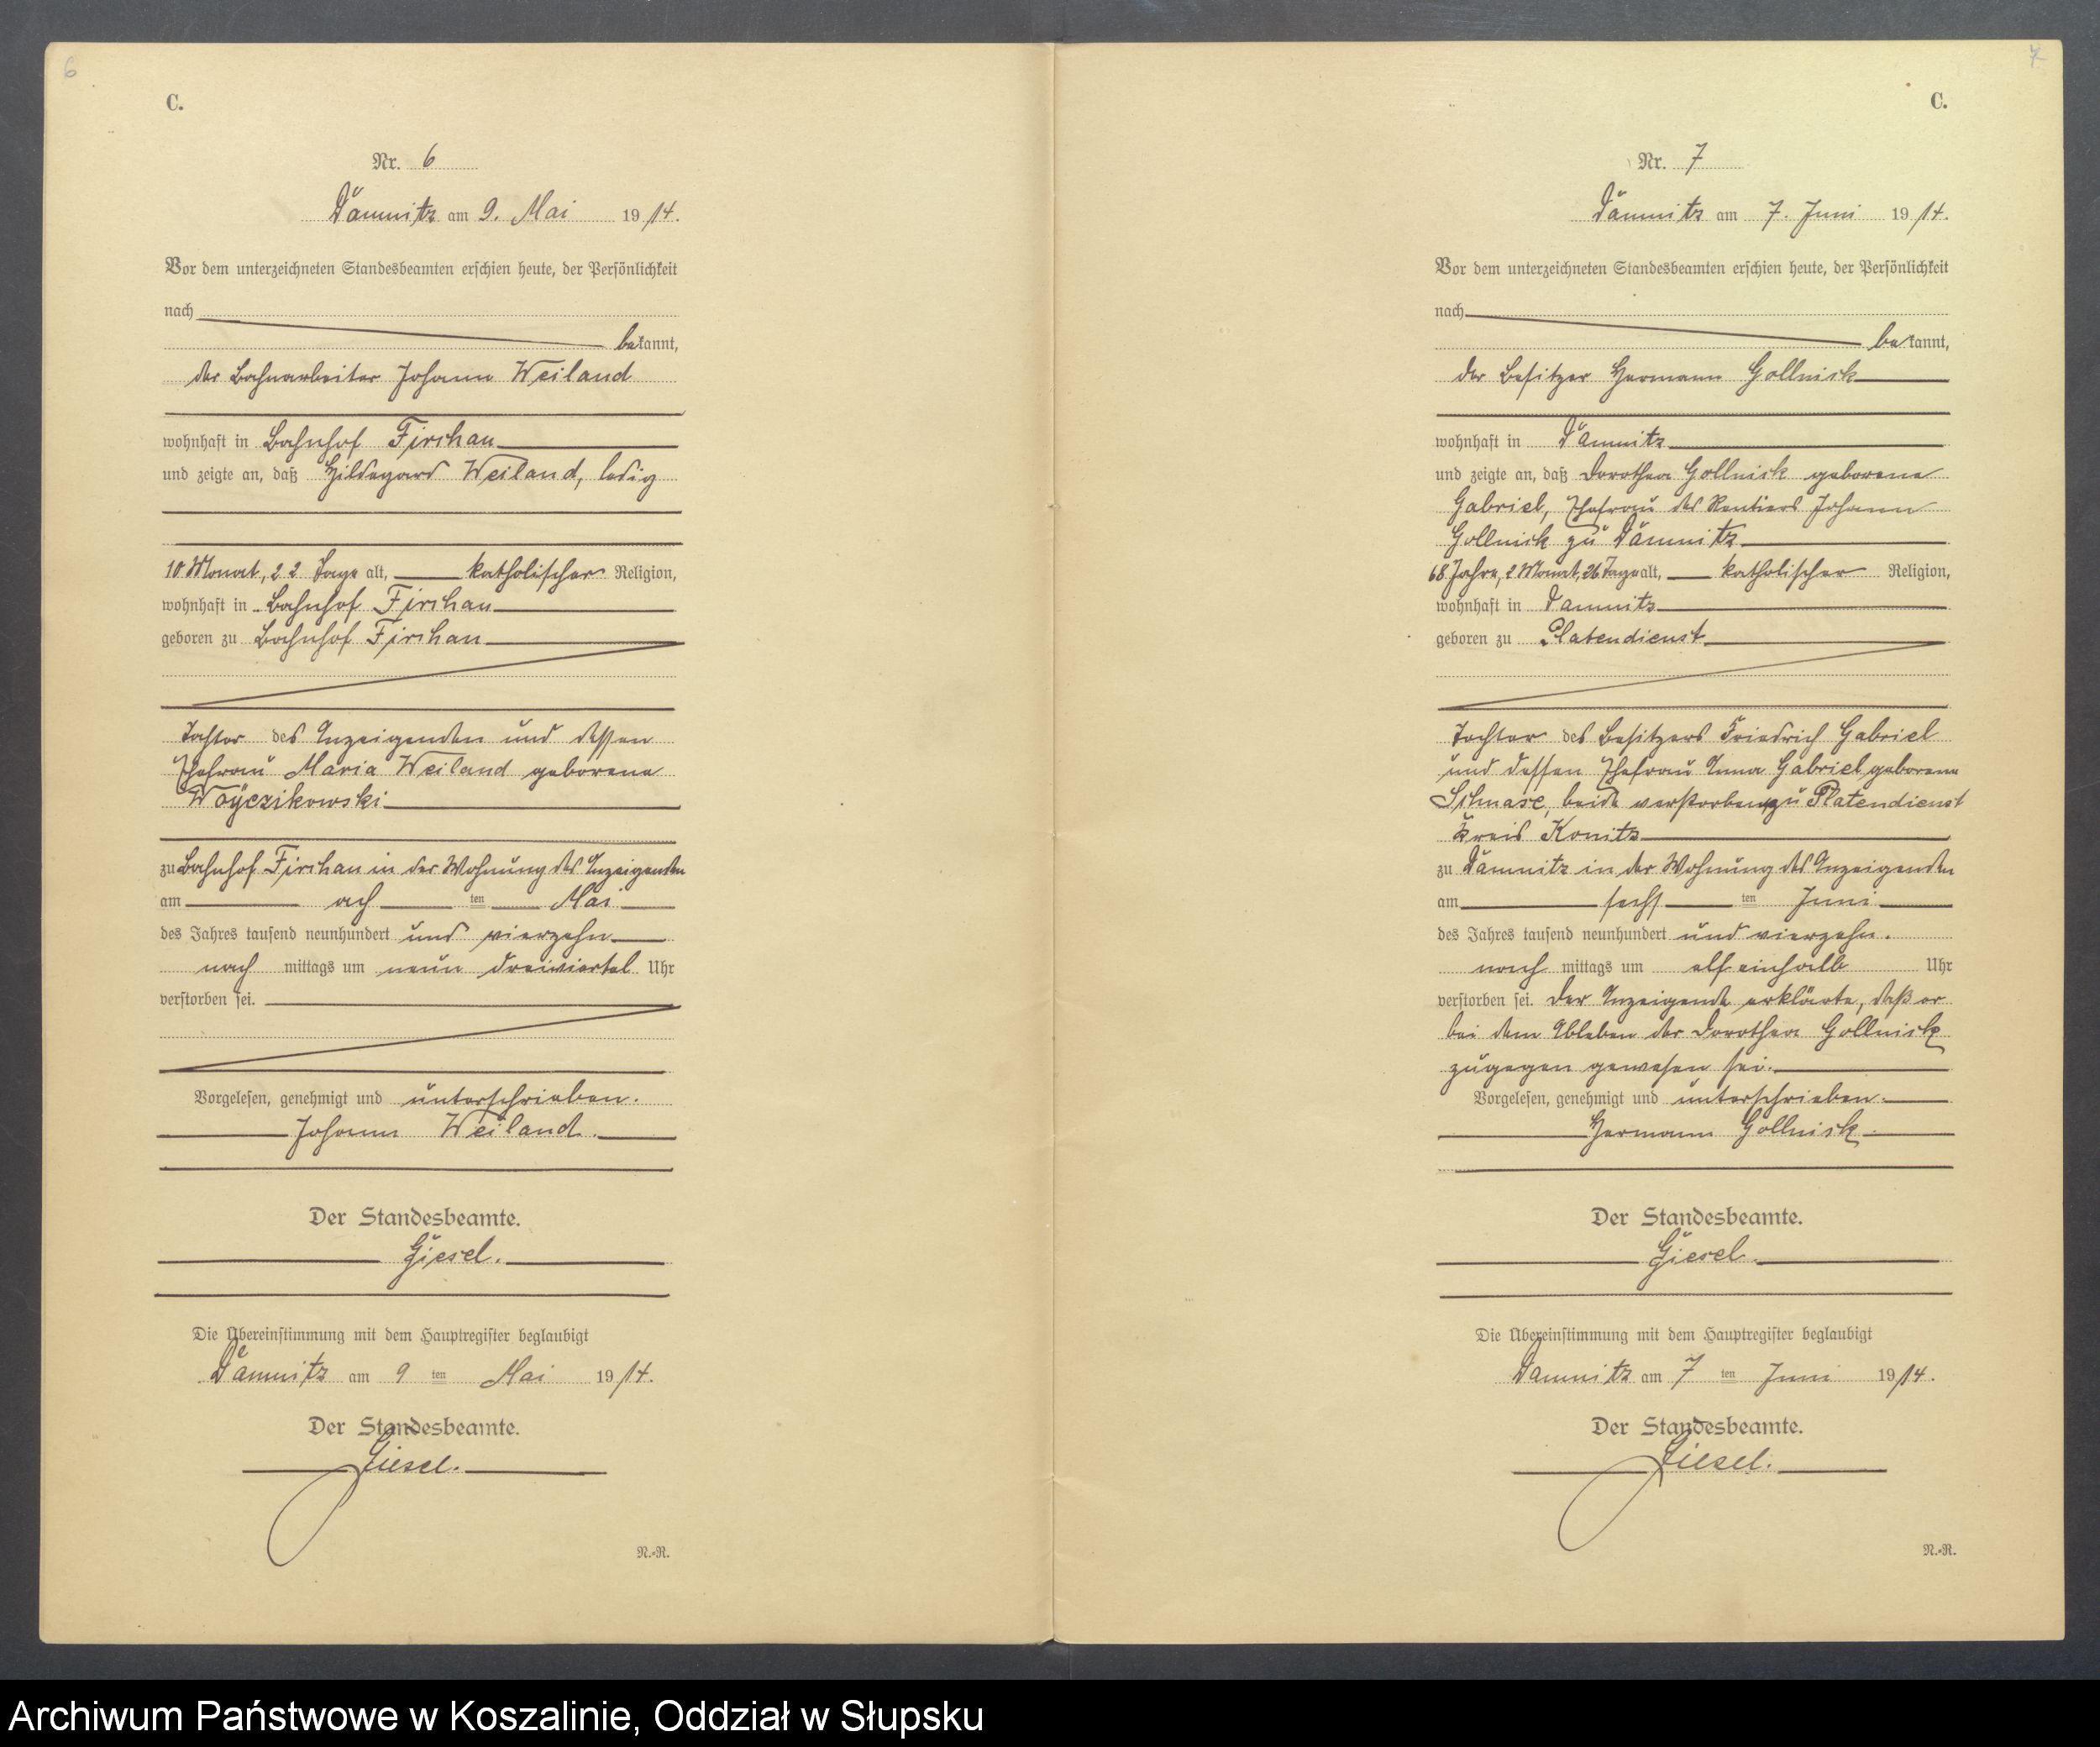 6
C.
Nr. 6
Dămnitz am 9. Mai 1914.
Vor dem unterzeichneten Standesbeamten erschien heute, der Persönlichkeit
nach
bekannt,
der Bahnarbeiter Johann Weiland
wohnhaft in Bahnhof Firchau
und zeigte an, daß Hildegard Weiland, ledig
10 Monat, 22 Tage alt, katholischer Religion,
wohnhaft in Bahnhof Firchau
geboren zu Bahnhof Firchau
Tochter des Anzeigenden und dessen
Ehefrau Maria Weiland geborene
Woÿczikowski
zu Bahnhof Firchau in der Wohnung des Anzeigenden
am ach ten Mai
des Jahres tausend neunhundert und vierzehn
nach mittags um neun dreiviertel Uhr
verstorben sei.
Vorgelesen, genehmigt und unterschrieben.
Johann Weiland.
Der Standesbeamte.
Giesel.
Die Übereinstimmung mit dem Hauptregister beglaubigt
Dămnitz am 9 ten Mai 1914.
Der Standesbeamte.
Giesel.
N.-R.
7
C.
Nr. 7
Dămnitz am 7. Juni 1914.
Vor dem unterzeichneten Standesbeamten erschien heute, der Persönlichkeit
nach
bekannt,
der Besitzer Hermann Gollnick
wohnhaft in Dămnitz
und zeigte an, daß Dorothea Gollnick geborene
Gabriel, Ehefrau des Rentiers Johann
Gollnick zu Dămnitz
68 Jahre, 2 Monat, 26 Tage alt, katholischer Religion,
wohnhaft in Damnitz
geboren zu Platendienst
Tochter des Besitzers Friedrich Gabriel
und dessen Ehefrau Anna Gabriel geborene
Schmase, beide verstorben zu Platendienst
Kreis Konitz
zu Dămnitz in der Wohnung des Anzeigenden
am sechs ten Juni
des Jahres tausend neunhundert und vierzehn.
nach mittags um elf einhalb Uhr
verstorben sei. Der Anzeigende erklärte, daß er
bei dem Ableben der Dorothea Gollnick
zugegen gewesen sei.
Vorgelesen, genehmigt und unterschrieben.
Hermann Gollnick.
Der Standesbeamte.
Giesel.
Die Übereinstimmung mit dem Hauptregister beglaubigt
Damnitz am 7 ten Juni 1914.
Der Standesbeamte.
Giesel.
N.-R.
Archiwum Państwowe w Koszalinie, Oddział w Słupsku